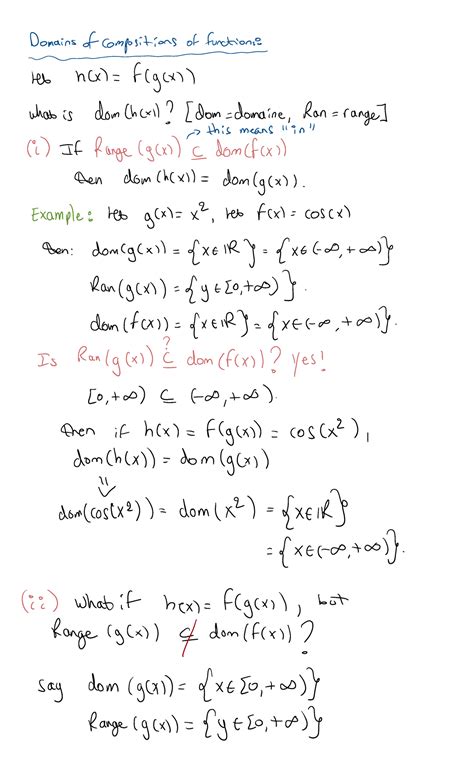 Domains of compositions of functions:
let h(x) = f(g(x))
what is dom(h(x))? [Dom = domaine, Ran = range]
→ this means "in"
(i) If Range(g(x)) ⊆ dom(f(x))
then dom(h(x)) = dom(g(x)).
Example: let g(x) = x², let f(x) = cos(x)
then: dom(g(x)) = {x∈ℝ} = {x∈(-∞,+∞)}
Ran(g(x)) = {y∈[0,+∞)}.
dom(f(x)) = {x∈ℝ} = {x∈(-∞,+∞)}.
Is Ran(g(x)) ⊆? dom(f(x))? yes!
[0,+∞) ⊆ (-∞,+∞).
then if h(x) = f(g(x)) = cos(x²),
dom(h(x)) = dom(g(x))
dom(cos(x²)) = dom(x²) = {x∈ℝ}
= {x∈(-∞,+∞)}.
(ii) what if h(x) = f(g(x)), but
Range(g(x)) ⊈ dom(f(x))?
say dom(g(x)) = {x∈[0,+∞)}
Range(g(x)) = {y∈[0,+∞)}